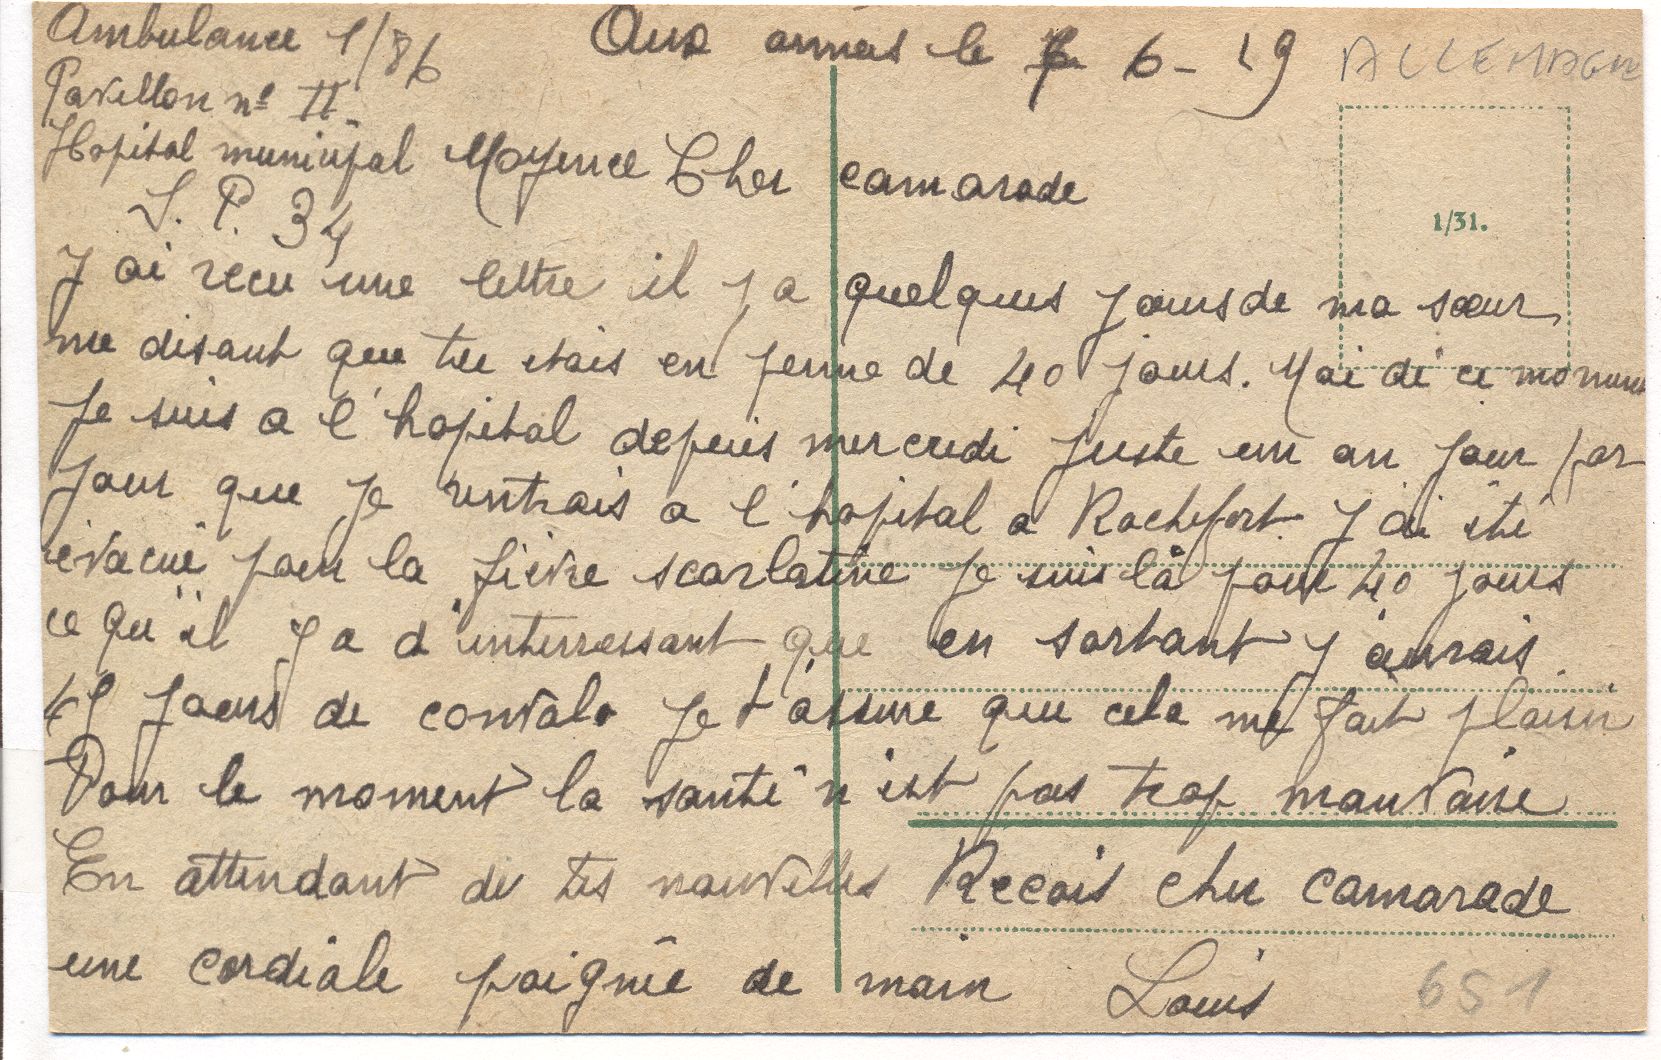 Ambulance 1/86
Pavillon nº II
Hopital municipal Mayence
S. P. 34
Aux armées le 6 - 19
ALLEMAGNE
1/31.
Cher camarade
J ai recu une lettre il y a quelques jours de ma sœur
me disant que tu etais en perme de 20 jours. Moi di ce moment
Je suis a l'hopital depuis mercredi juste un an jour par
jour que je rentrais a l'hopital a Rochefort. J ai été
évacué pour la fièvre scarlatine je suis là pour 40 jours
ce qu'il y a d'interressant que en sortant j'aurais
45 jours de convalo je t'assure que cela me fait plaisir
Pour le moment la santé n'est pas trop mauvaise
En attendant de tes nouvelles Recois cher camarade
une cordiale poignée de main Louis
651